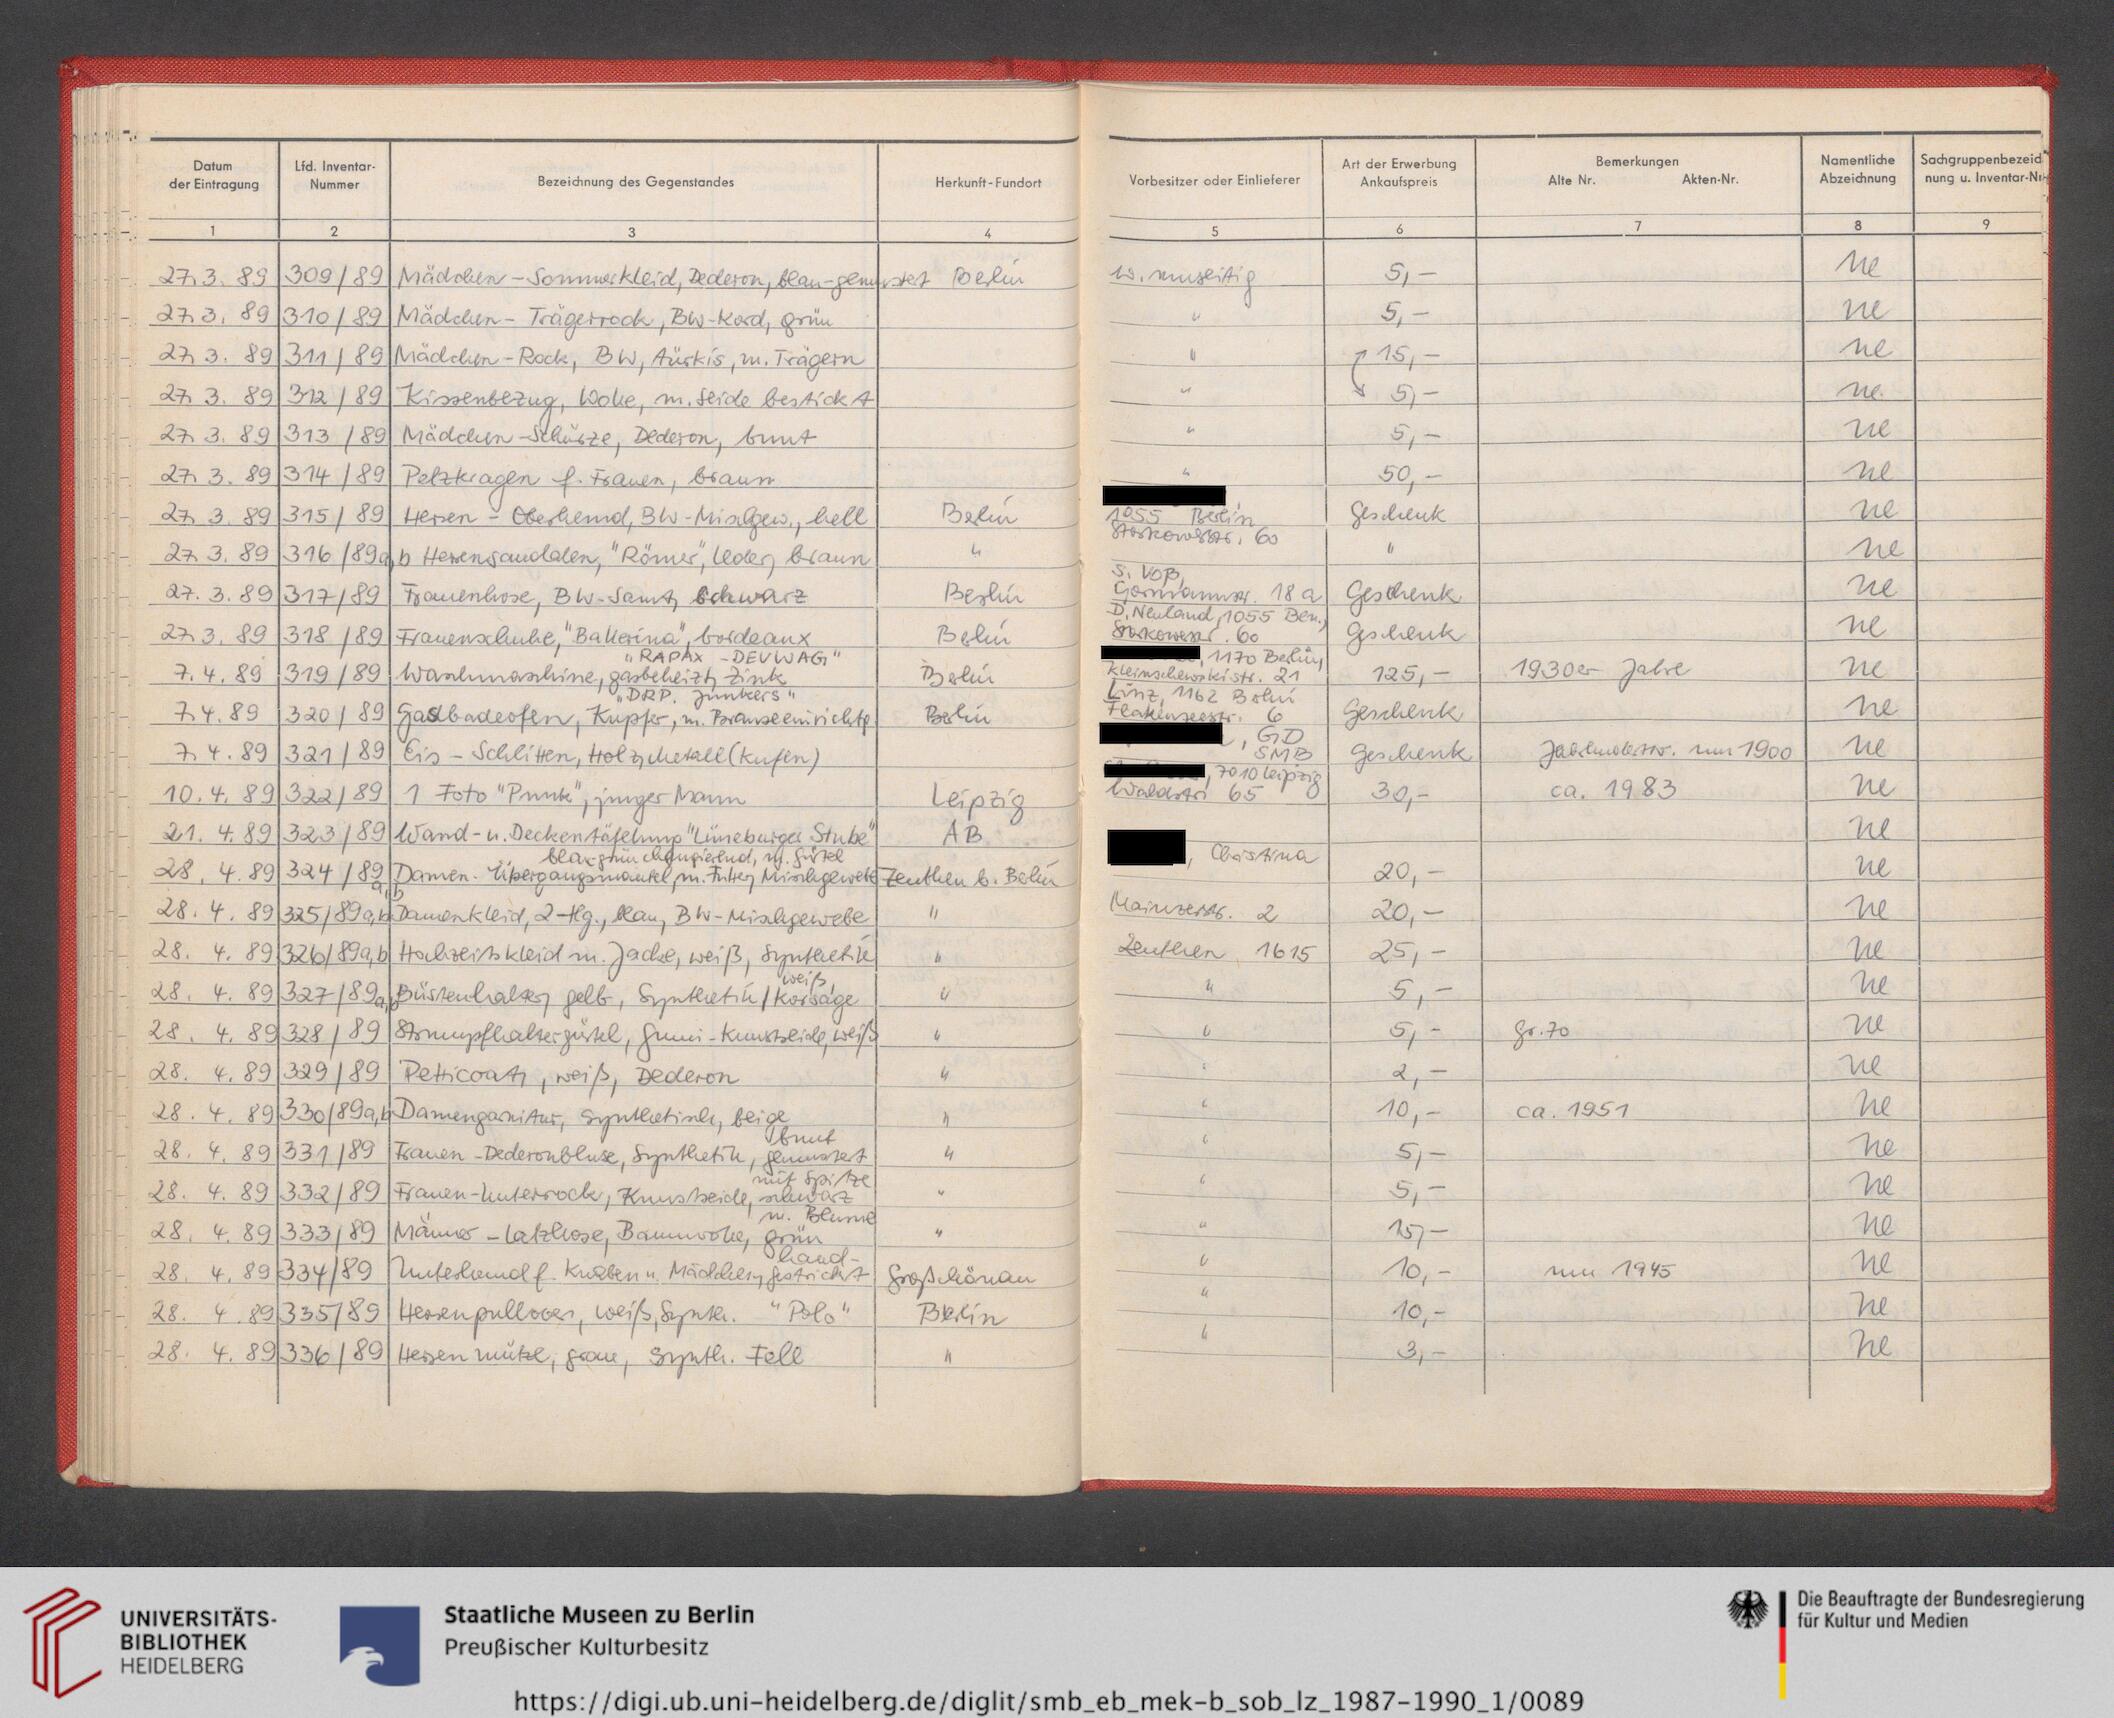 Datum der Eintragung | Lfd. Inventar-Nummer | Bezeichnung des Gegenstandes | Herkunft-Fundort | Vorbesitzer oder Einlieferer | Art der Erwerbung Ankaufspreis | Bemerkungen Alte Nr. Akten-Nr. | Namentliche Abzeichnung | Sachgruppenbezeich nung u. Inventar-Nr.
1 | 2 | 3 | 4 | 5 | 6 | 7 | 8 | 9
27.3. 89 | 309/89 | Mädchen-Sommerkleid, Dederon, blau-gemustert | Berlin | w. umseitig | 5,- | Ne
27.3. 89 | 310/89 | Mädchen-Trägerrock, BW-Kord, grün | " | 5,- | Ne
27.3. 89 | 311/89 | Mädchen-Rock, BW, Türkis, m. Trägern | " | 15,- | Ne
27.3. 89 | 312/89 | Kissenbezug, Wolle, m. Seide bestickt | " | 5,- | Ne
27.3. 89 | 313/89 | Mädchen-Schürze, Dederon, bunt | " | 5,- | Ne
27.3. 89 | 314/89 | Pelzkragen f. Frauen, braun | " | 50,- | Ne
27.3. 89 | 315/89 | Herren-Oberhemd, BW-Mischgew., hell | Berlin | 1055 Berlin Storkowerstr. 60 | Geschenk | Ne
27.3. 89 | 316/89a,b | Herrensandalen, "Römer", Leder, braun | " | " | Ne
27.3.89 | 317/89 | Frauenhose, BW-Samt, schwarz | Berlin | S. Voß, Gormannstr. 18a | Geschenk | Ne
27.3. 89 | 318/89 | Frauenschuhe, "Ballerina", bordeaux | Berlin | D. Neuland, 1055 Bln., Storkowerstr. 60 | Geschenk | Ne
7.4. 89 | 319/89 | Waschmaschine, gasbeheizt, Zink "RAPAX-DEVWAG" | Berlin | , 1170 Berlin, 21 | 125,- | 1930er Jahre | Ne
7.4.89 | 320/89 | Gasbadeofen, Kupfer, m. Brauseeinrichtg "DRP. Junkers" | Berlin | Linz, 1162 Berlin Flakenseestr. 6 | Geschenk | Ne
7.4.89 | 321/89 | Eis-Schlitten, Holz, Metall (Kufen) | , GD SMB | Geschenk | um 1900 | Ne
10.4.89 | 322/89 | 1 Foto "Punk", junger Mann | Leipzig | , 7010 Leipzig Waldstr. 65 | 30,- | ca. 1983 | Ne
21.4.89 | 323/89 | Wand-u. Deckentäfelung "Lüneburger Stube" | AB | Ne
28.4.89 | 324/89 a,b | Damen-Übergangsmantel, m. Futter, Mischgewebe blau-grün changierend, m. Gürtel | Zeuthen b. Berlin | , Christina | 20,- | Ne
28.4.89 | 325/89a,b | Damenkleid, 2-tlg., blau, BW-Mischgewebe | " | Mainzerstr. 2 | 20,- | Ne
28.4.89 | 326/89a,b | Hochzeitskleid m. Jacke, weiß, Synthetik | " | Zeuthen 1615 | 25,- | Ne
28.4.89 | 327/89a,b | Büstenhalter, gelb, Synthetik/Korsage weiß | " | " | 5,- | Ne
28.4.89 | 328/89 | Strumpfhaltergürtel, Gumi-Kunstseide, weiß | " | " | 5,- | Gr. 70 | Ne
28.4.89 | 329/89 | Petticoat, weiß, Dederon | " | " | 2,- | Ne
28.4.89 | 330/89a,b | Damengarnitur, synthetisch, beige | " | " | 10,- | ca. 1951 | Ne
28.4.89 | 331/89 | Frauen-Dederonbluse, Synthetik, bunt gemustert | " | " | 5,- | Ne
28.4.89 | 332/89 | Frauen-Unterrock, Kunstseide, schwarz mit Spitze | " | " | 5,- | Ne
28.4.89 | 333/89 | Männer-Latzhose, Baumwolle, grün m. Blume | " | " | 15,- | Ne
28.4.89 | 334/89 | Unterhemd f. Knaben u. Mädchen, hand-gestrickt | Großschönau | " | 10,- | um 1945 | Ne
28.4.89 | 335/89 | Herrenpullover, weiß, Synth. "Polo" | Berlin | " | 10,- | Ne
28.4.89 | 336/89 | Herrenmütze, grau, Synth. Fell | " | " | 3,- | Ne
UNIVERSITÄTS-
BIBLIOTHEK
HEIDELBERG
Staatliche Museen zu Berlin
Preußischer Kulturbesitz
Die Beauftragte der Bundesregierung
für Kultur und Medien
https://digi.ub.uni-heidelberg.de/diglit/smb_eb_mek-b_sob_lz_1987-1990_1/0089